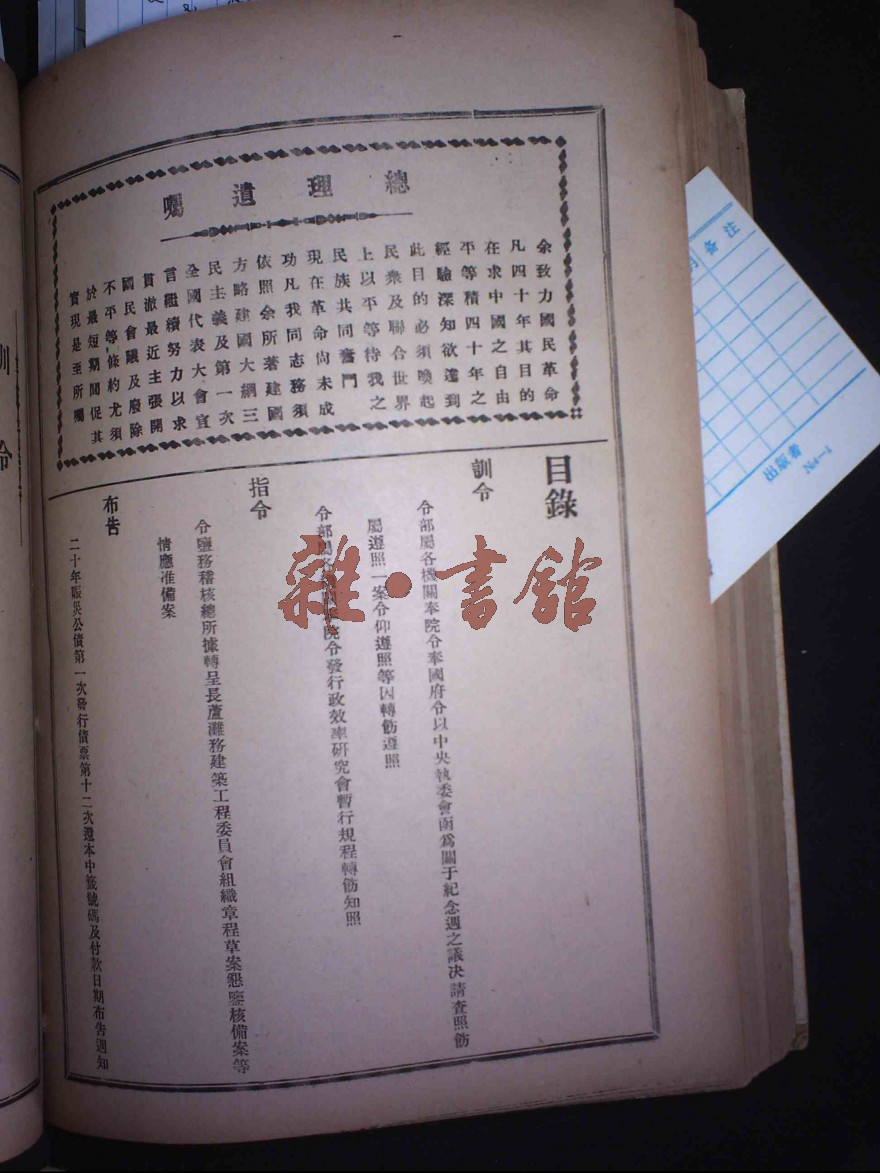 總理遺囑
余致力國民革命
凡四十年其目的
在求中國之自由
平等積四十年之
經驗深知欲達到
此目的必須喚起
民衆及聯合世界
上以平等待我之
民族共同奮鬥
現在革命尙未成
功凡我同志務須
依照余所著建國
方略建國大綱三
民主義及第一次
全國代表大會宣
言繼續努力以求
貫澈最近主張開
國民會議及廢除
不平等條約尤須
於最短期間促其
實現是至所囑
目錄
訓令
令部屬各機關奉院令奉國府令以中央執委會函爲關于紀念週之議決請查照飭
屬遵照一案令仰遵照等因轉飭遵照
令部屬各院令發行政效率硏究會暫行規程轉飭知照
指令
令鹽務稽核總所據轉呈長蘆灘務建築工程委員會組織章程草案懇鑒核備案等
情應准備案
布告
二十年賑災公債第一次發行債票第十二次還本中籤號碼及付款日期布告週知
雜·書館
訓令
备注
出版者